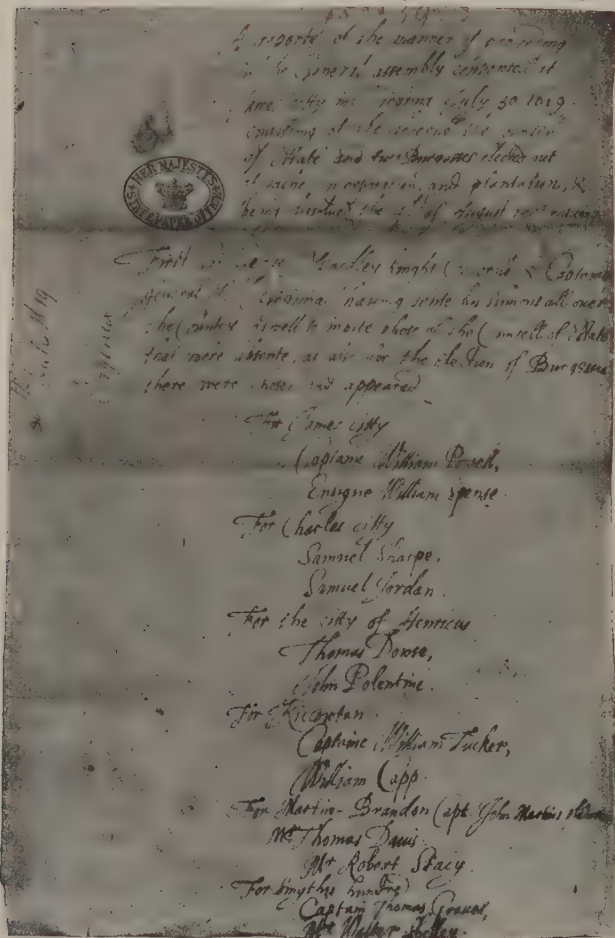 A reporte of the manner of proceeding
in the General assembly convented at
James citty in Virginia July 30 1619.
consisting of the Governor the
of Estate and two Burgesses elected out
of eache incorporation, and plantation, &
being the of August
HER MAJESTY'S
STATE PAPER OFFICE
First Sir George Yeardley Knight & Captaine
general of Virginia, having sente his sumons all over
the Country, as well to invite those of the Counsell of Estate
that were absente, as also for the election of Burgesses
there were chosen and appeared
For James citty
Captaine William Powell,
Ensigne William Spense.
For Charles citty
Samuel Sharpe,
Samuel Jordan.
For the citty of Henricus
Thomas Dowse,
John Polentine.
For Kiccowtan
Captaine William Tucker,
William Capp.
For Martin-Brandon Capt. John Martins
Mr Thomas Davis.
Mr Robert Stacy.
For Smythes hundred
Captain Thomas Graves,
Mr Walter Shelley.